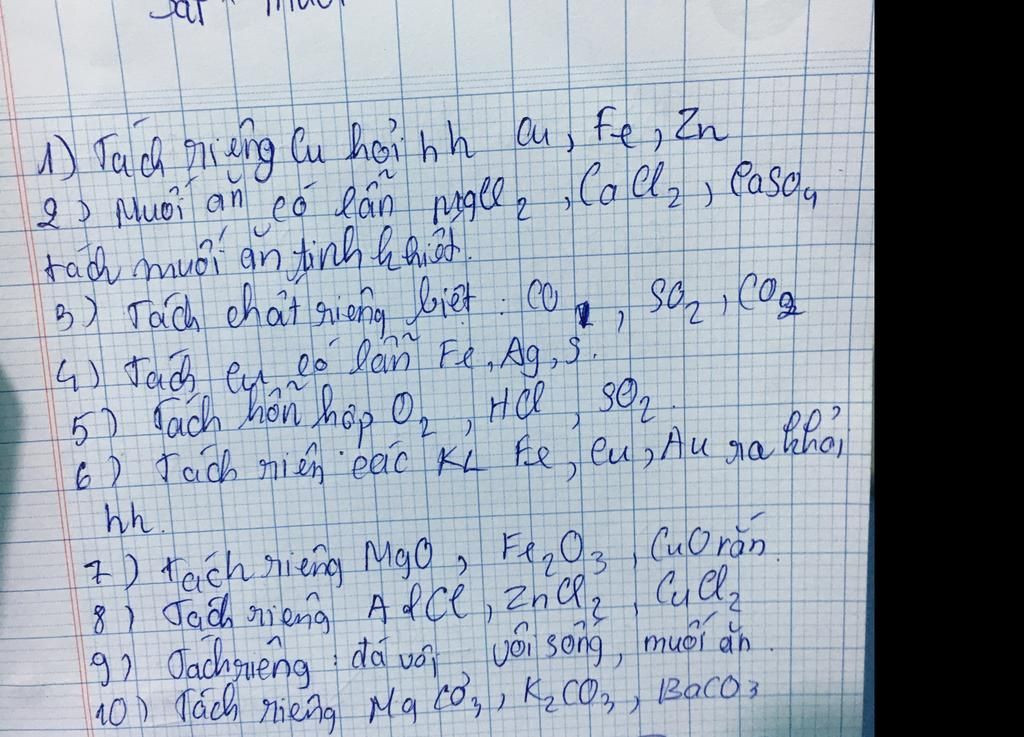 1) Tách riêng Cu khỏi hh Cu, Fe, Zn
2) Muối ăn có lẫn MgCl2, CaCl2, CaSO4
tách muối ăn tinh khiết.
3) Tách chất riêng biệt: CO, SO2, CO2
4) Tách Cu có lẫn Fe, Ag, S.
5) Tách hỗn hợp O2, HCl, SO2.
6) Tách riên các KL Fe, Cu, Au ra khỏi
hh.
7) tách riêng MgO, Fe2O3, CuO rắn.
8) Tách riêng AlCl, ZnCl2, CuCl2
9) Tách riêng: đá vôi, vôi sống, muối ăn.
10) Tách riêng MgCO3, K2CO3, BaCO3